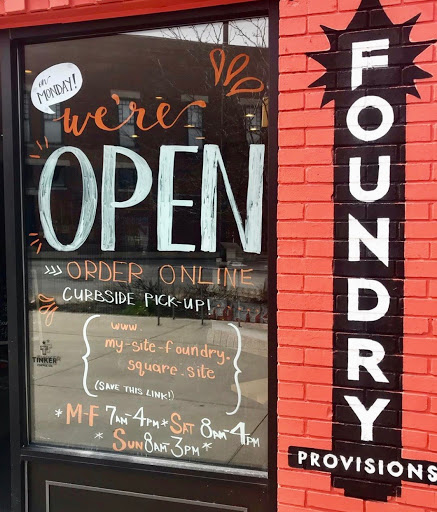 in
MONDAY!
we're
OPEN
>>> ORDER ONLINE
CURBSIDE PICK-UP!
www.
my-site-foundry.
square.site
(SAVE THIS LINK!)
*M-F 7AM-4PM * SAT 8AM-4PM
*SUN 8AM-3PM*
TINKER
COFFEE CO.
FOUNDRY
PROVISIONS